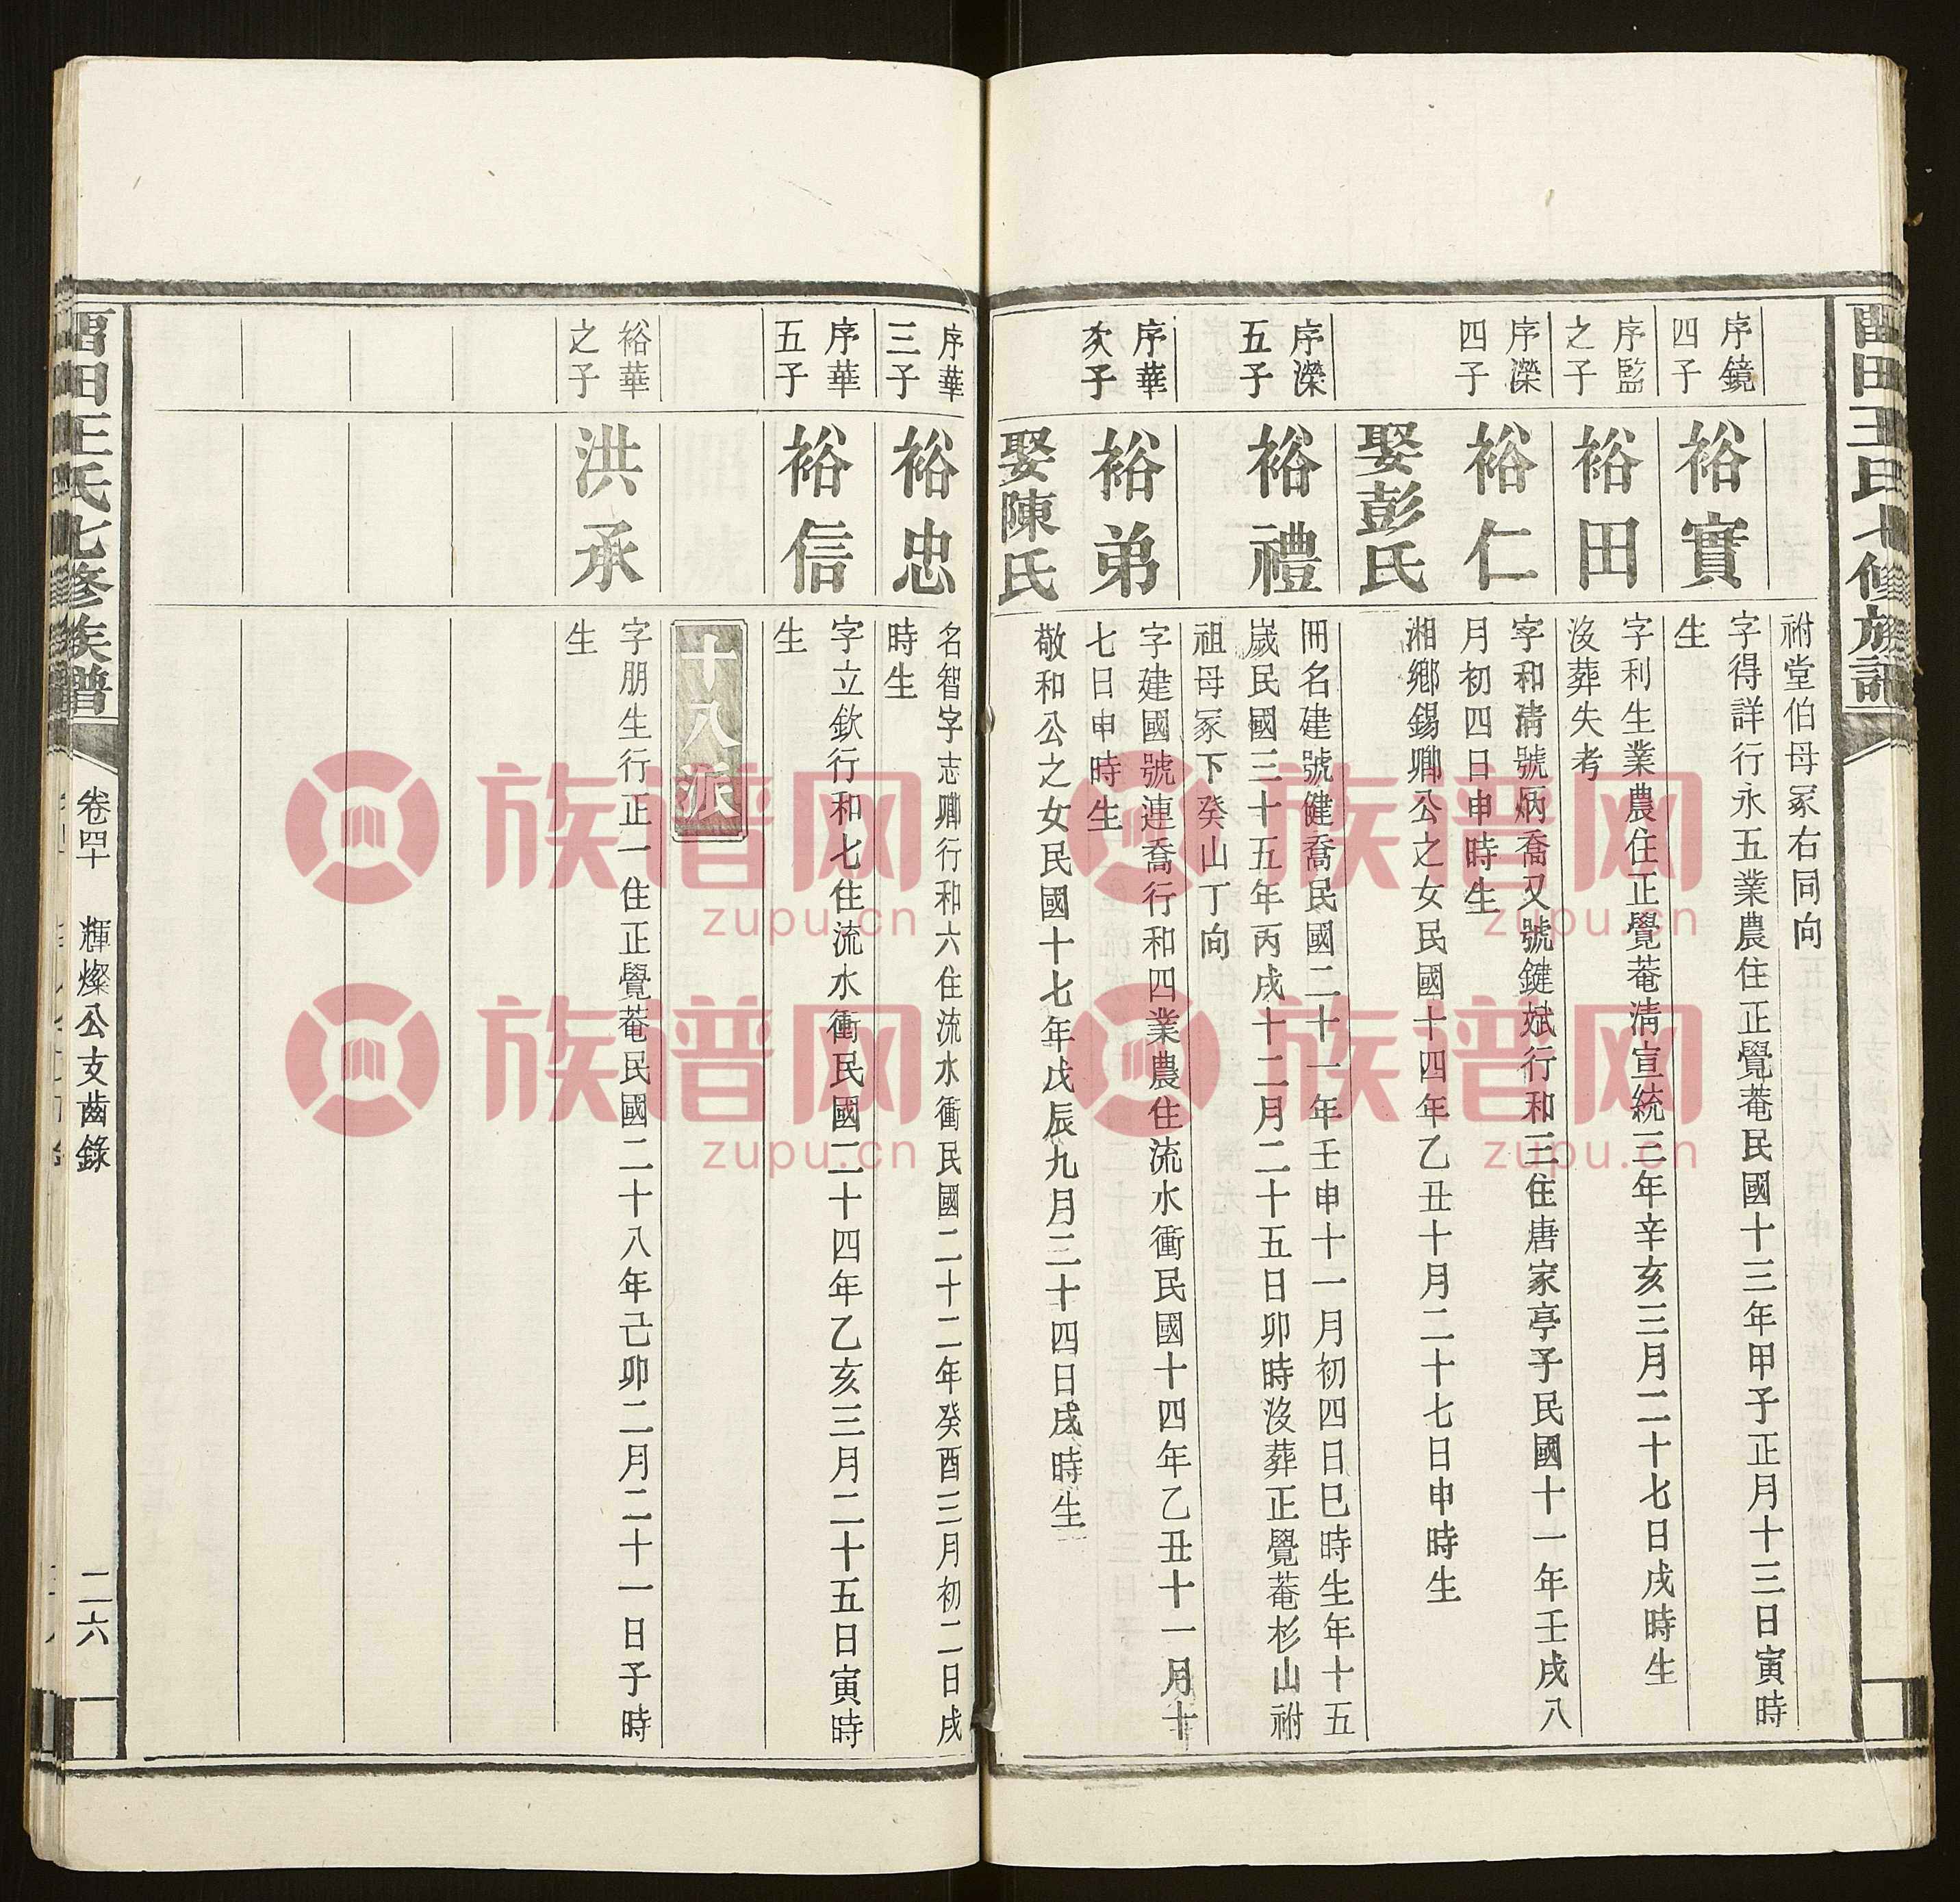 祔堂伯母冢右同向
序鏡
四子
裕實
字得詳行永五業農住正覺菴民國十三年甲子正月十三日寅時
生
序監
之子
裕田
字利生業農住正覺菴清宣統三年辛亥三月二十七日戌時生
沒葬失考
序濼
四子
裕仁
字和清號炳喬又號鍵斌行和三住唐家亭子民國十一年壬戌八
月初四日申時生
娶彭氏
湘鄉錫卿公之女民國十四年乙丑十月二十七日申時生
序濼
五子
裕禮
冊名建號健喬民國二十一年壬申十一月初四日巳時生年十五
歲民國三十五年丙戌十二月二十五日卯時沒葬正覺菴杉山祔
祖母冢下癸山丁向
序華
次子
裕弟
字建國號連喬行和四業農住流水衝民國十四年乙丑十一月十
七日申時生
娶陳氏
敬和公之女民國十七年戊辰九月二十四日戌時生
序華
三子
裕忠
名智字志卿行和六住流水衝民國二十二年癸酉三月初二日戌
時生
序華
五子
裕信
字立欽行和七住流水衝民國二十四年乙亥三月二十五日寅時
生
十八派
裕華
之子
洪承
字朋生行正一住正覺菴民國二十八年己卯二月二十一日子時
生
田王氏七修族譜
卷四十 輝燦公支齒錄
二六
族谱网
zupu.cn
族谱网
zupu.cn
族谱网
zupu.cn
族谱网
zupu.cn